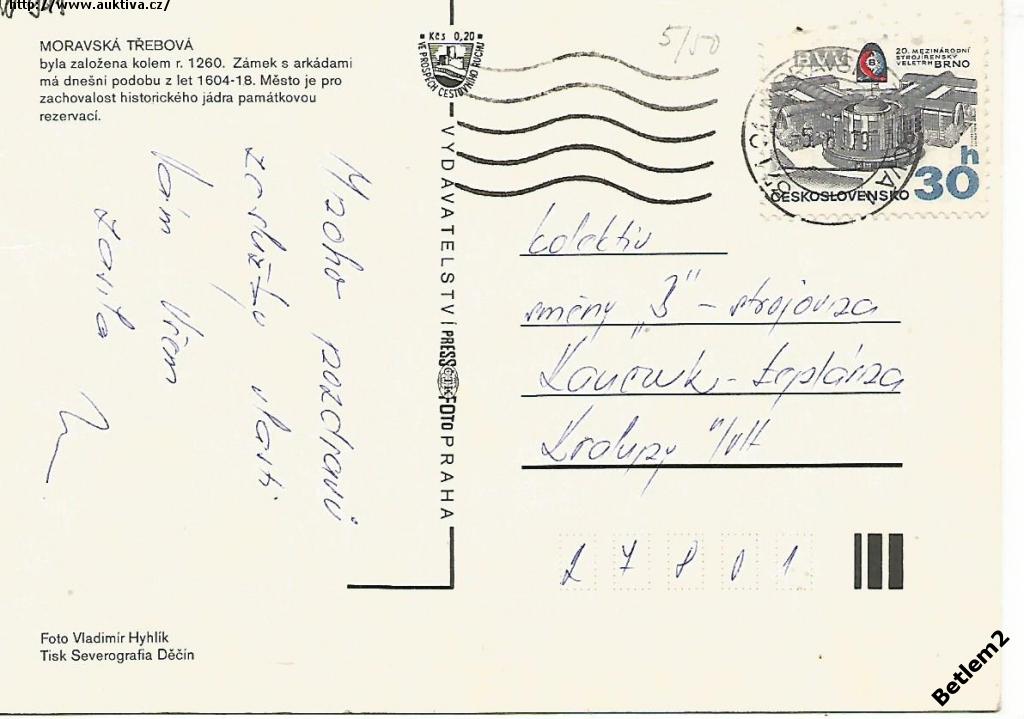 http://www.auktiva.cz/
MORAVSKÁ TŘEBOVÁ
byla založena kolem r. 1260. Zámek s arkádami
má dnešní podobu z let 1604-18. Město je pro
zachovalost historického jádra památkovou
rezervací.
Kčs 0,20
VE PROSPĚCH CESTOVNÍHO RUCHU
5/50
20. MEZINÁRODNÍ
STROJÍRENSKÝ
VELETRH BRNO
ČESKOSLOVENSKO
30 h
VYDAVATELSTVÍ PRESSFOTO PRAHA
ČTK
Mnoho pozdravů
z
vlasti
Vám všem
kolektiv
směny "B" - strojovna
Kaučuk - teplárna
Kralupy n/Vlt
27801
Foto Vladimír Hyhlík
Tisk Severografia Děčín
Betlem2